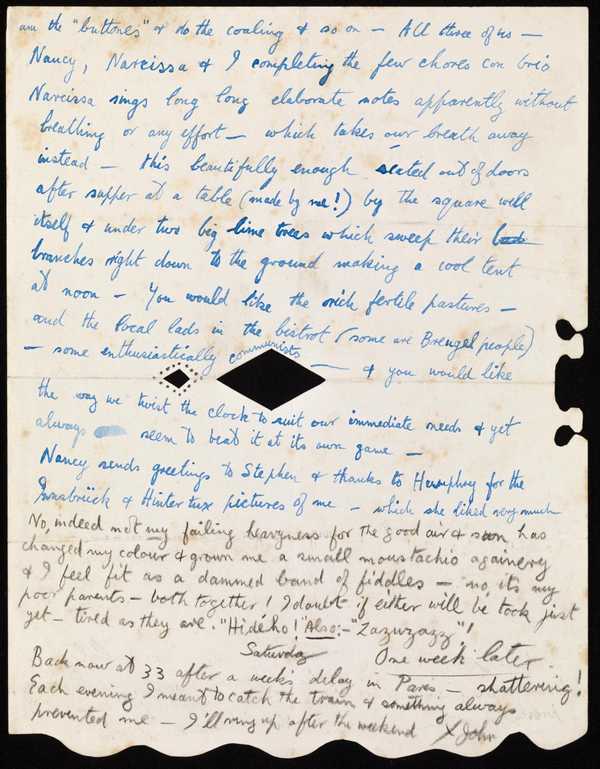 am the "buttones" & do the coaling & so on — All three of us —
Nancy, Narcissa & I completing the few chores con brio
Narcissa sings long long elaborate notes apparently without
breathing or any effort — which takes our breath away
instead — this beautifully enough seated out of doors
after supper at a table (made by me!) by the square well
itself & under two big lime trees which sweep their
branches right down to the ground making a cool tent
at noon — You would like the rich fertile pastures —
and the local lads in the bistrot (some are Breugel people)
— some enthusiastically communists — & you would like
the way we twist the clock to suit our immediate needs & yet
always seem to beat it at its own game —
Nancy sends greetings to Stephen & thanks to Humphry for the
Innsbrück & Hintertux pictures of me — which she liked very much
No, indeed not my failing heavyness for the good air & sun has
changed my colour & grown me a small moustachio
& I feel fit as a damned band of fiddles — no, its my
poor parents — both together! I doubt if either will be took just
yet — tired as they are. "Hideho!" Also:- "Zazuzazz"!
Saturday One week later.
Back now at 33 after a week's delay in Paris — shattering!
Each evening I meant to catch the train & something always
prevented me — I'll ring up after the weekend X John